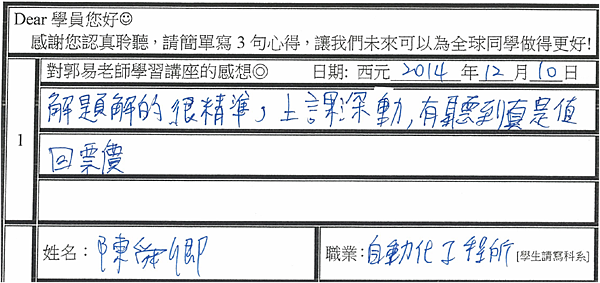 Dear 學員您好☺
感謝您認真聆聽，請簡單寫 3 句心得，讓我們未來可以為全球同學做得更好!
對郭易老師學習講座的感想◎ 日期: 西元 2014 年 12 月 10 日
1
解題解的很精準，上課深動，有聽到真是值
回票價
姓名：陳舜卿 職業：自動化工程所 [學生請寫科系]